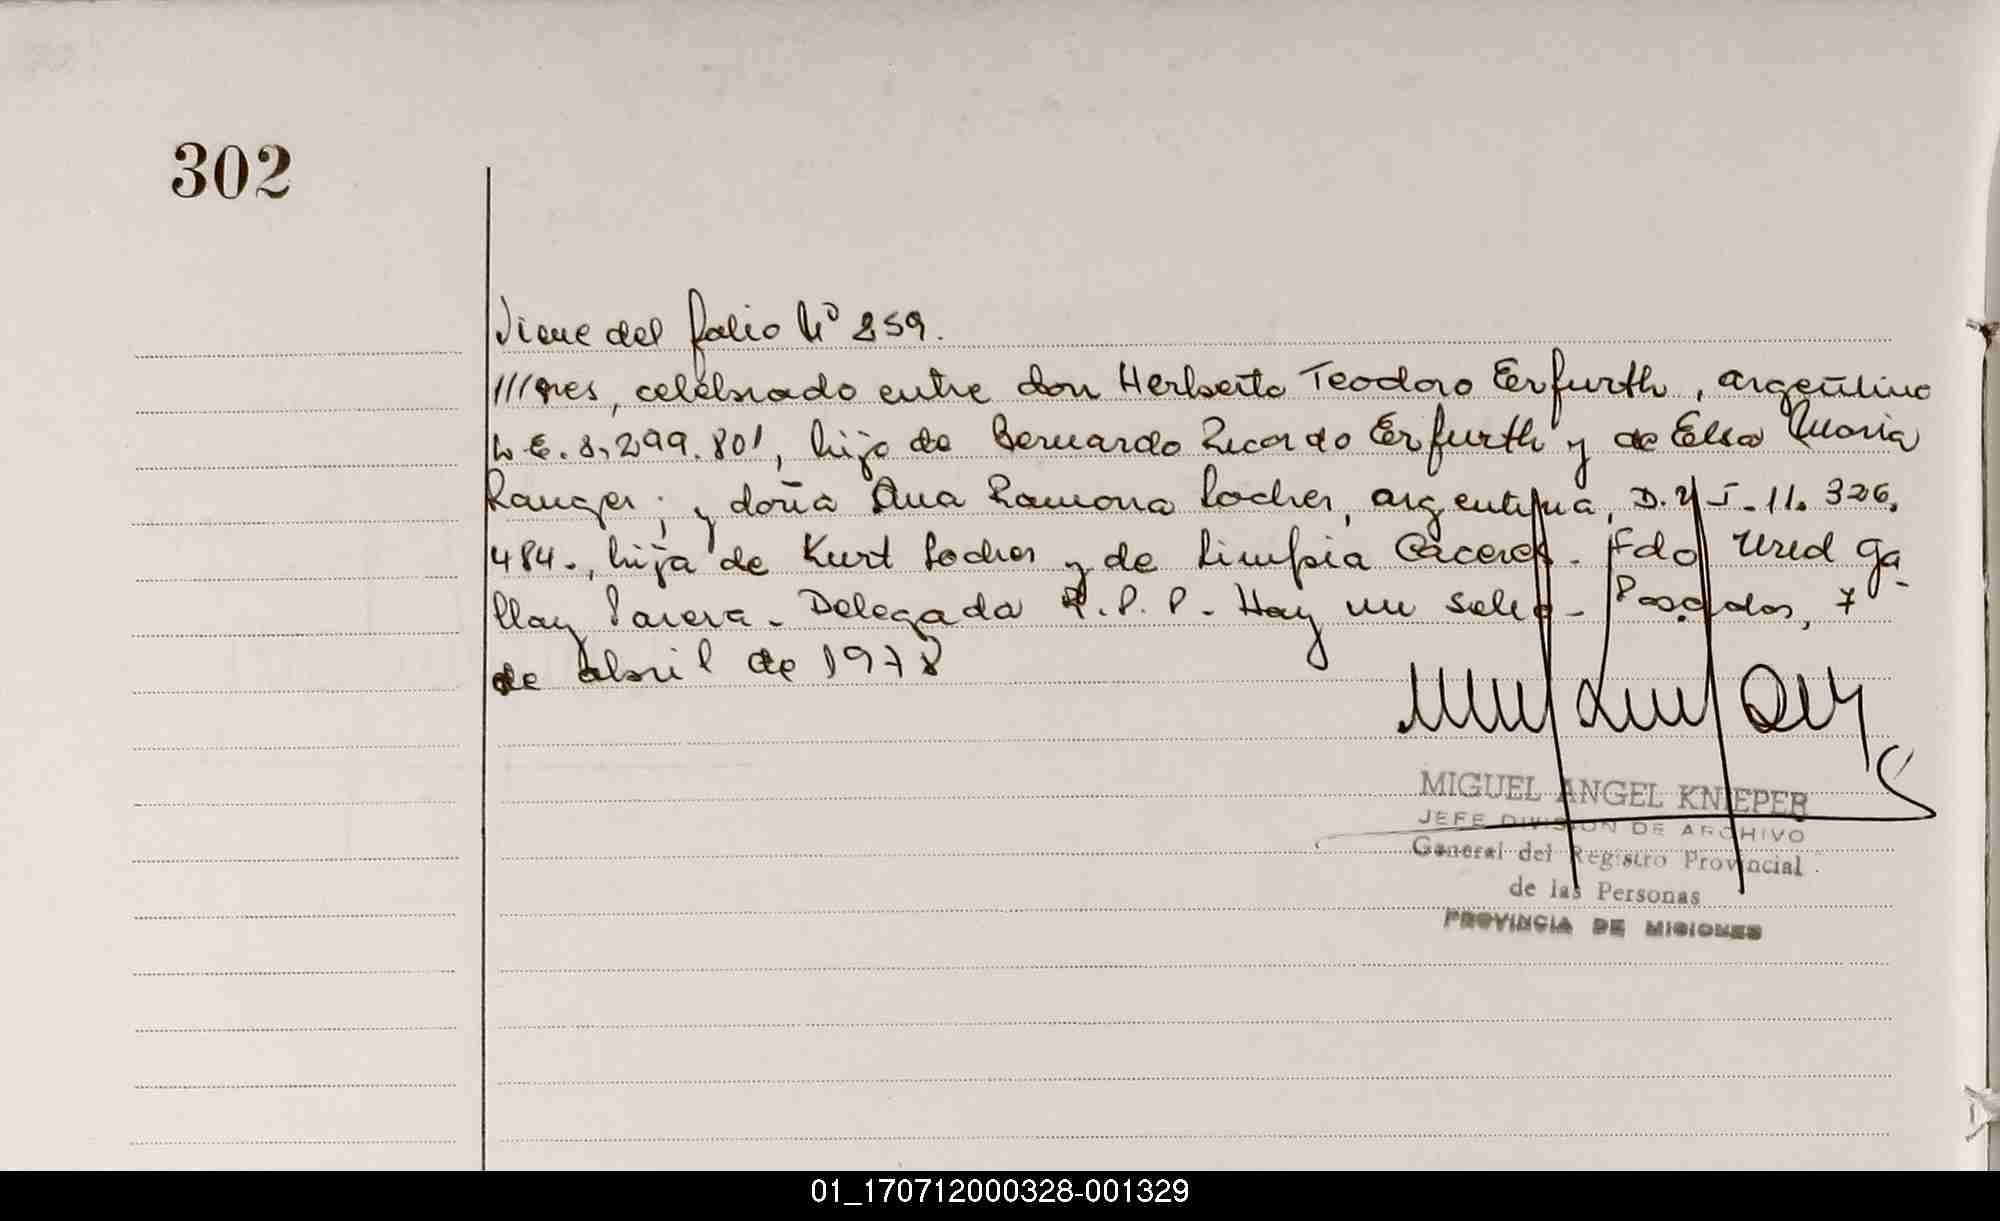 302
Viene del folio Nº 259.
///ques, celebrado entre don Herberto Teodoro Erfurth, argentino
L.E. 8.299.801, hijo de Bernardo Ricardo Erfurth y de Elsa Maria
Ranger; y doña Ana Ramona Locher, argentina, D.N.I. 11.326.
484., hija de Kurt Locher y de Limpia Cáceres. Fdo Ga
llay Parera. Delegada R.P.P. Hay un sello. Posadas, 7
de abril de 1978
MIGUEL ANGEL KNIEPER
JEFE DIVISION DE ARCHIVO
General del Registro Provincial
de las Personas
PROVINCIA DE MISIONES
01_170712000328-001329